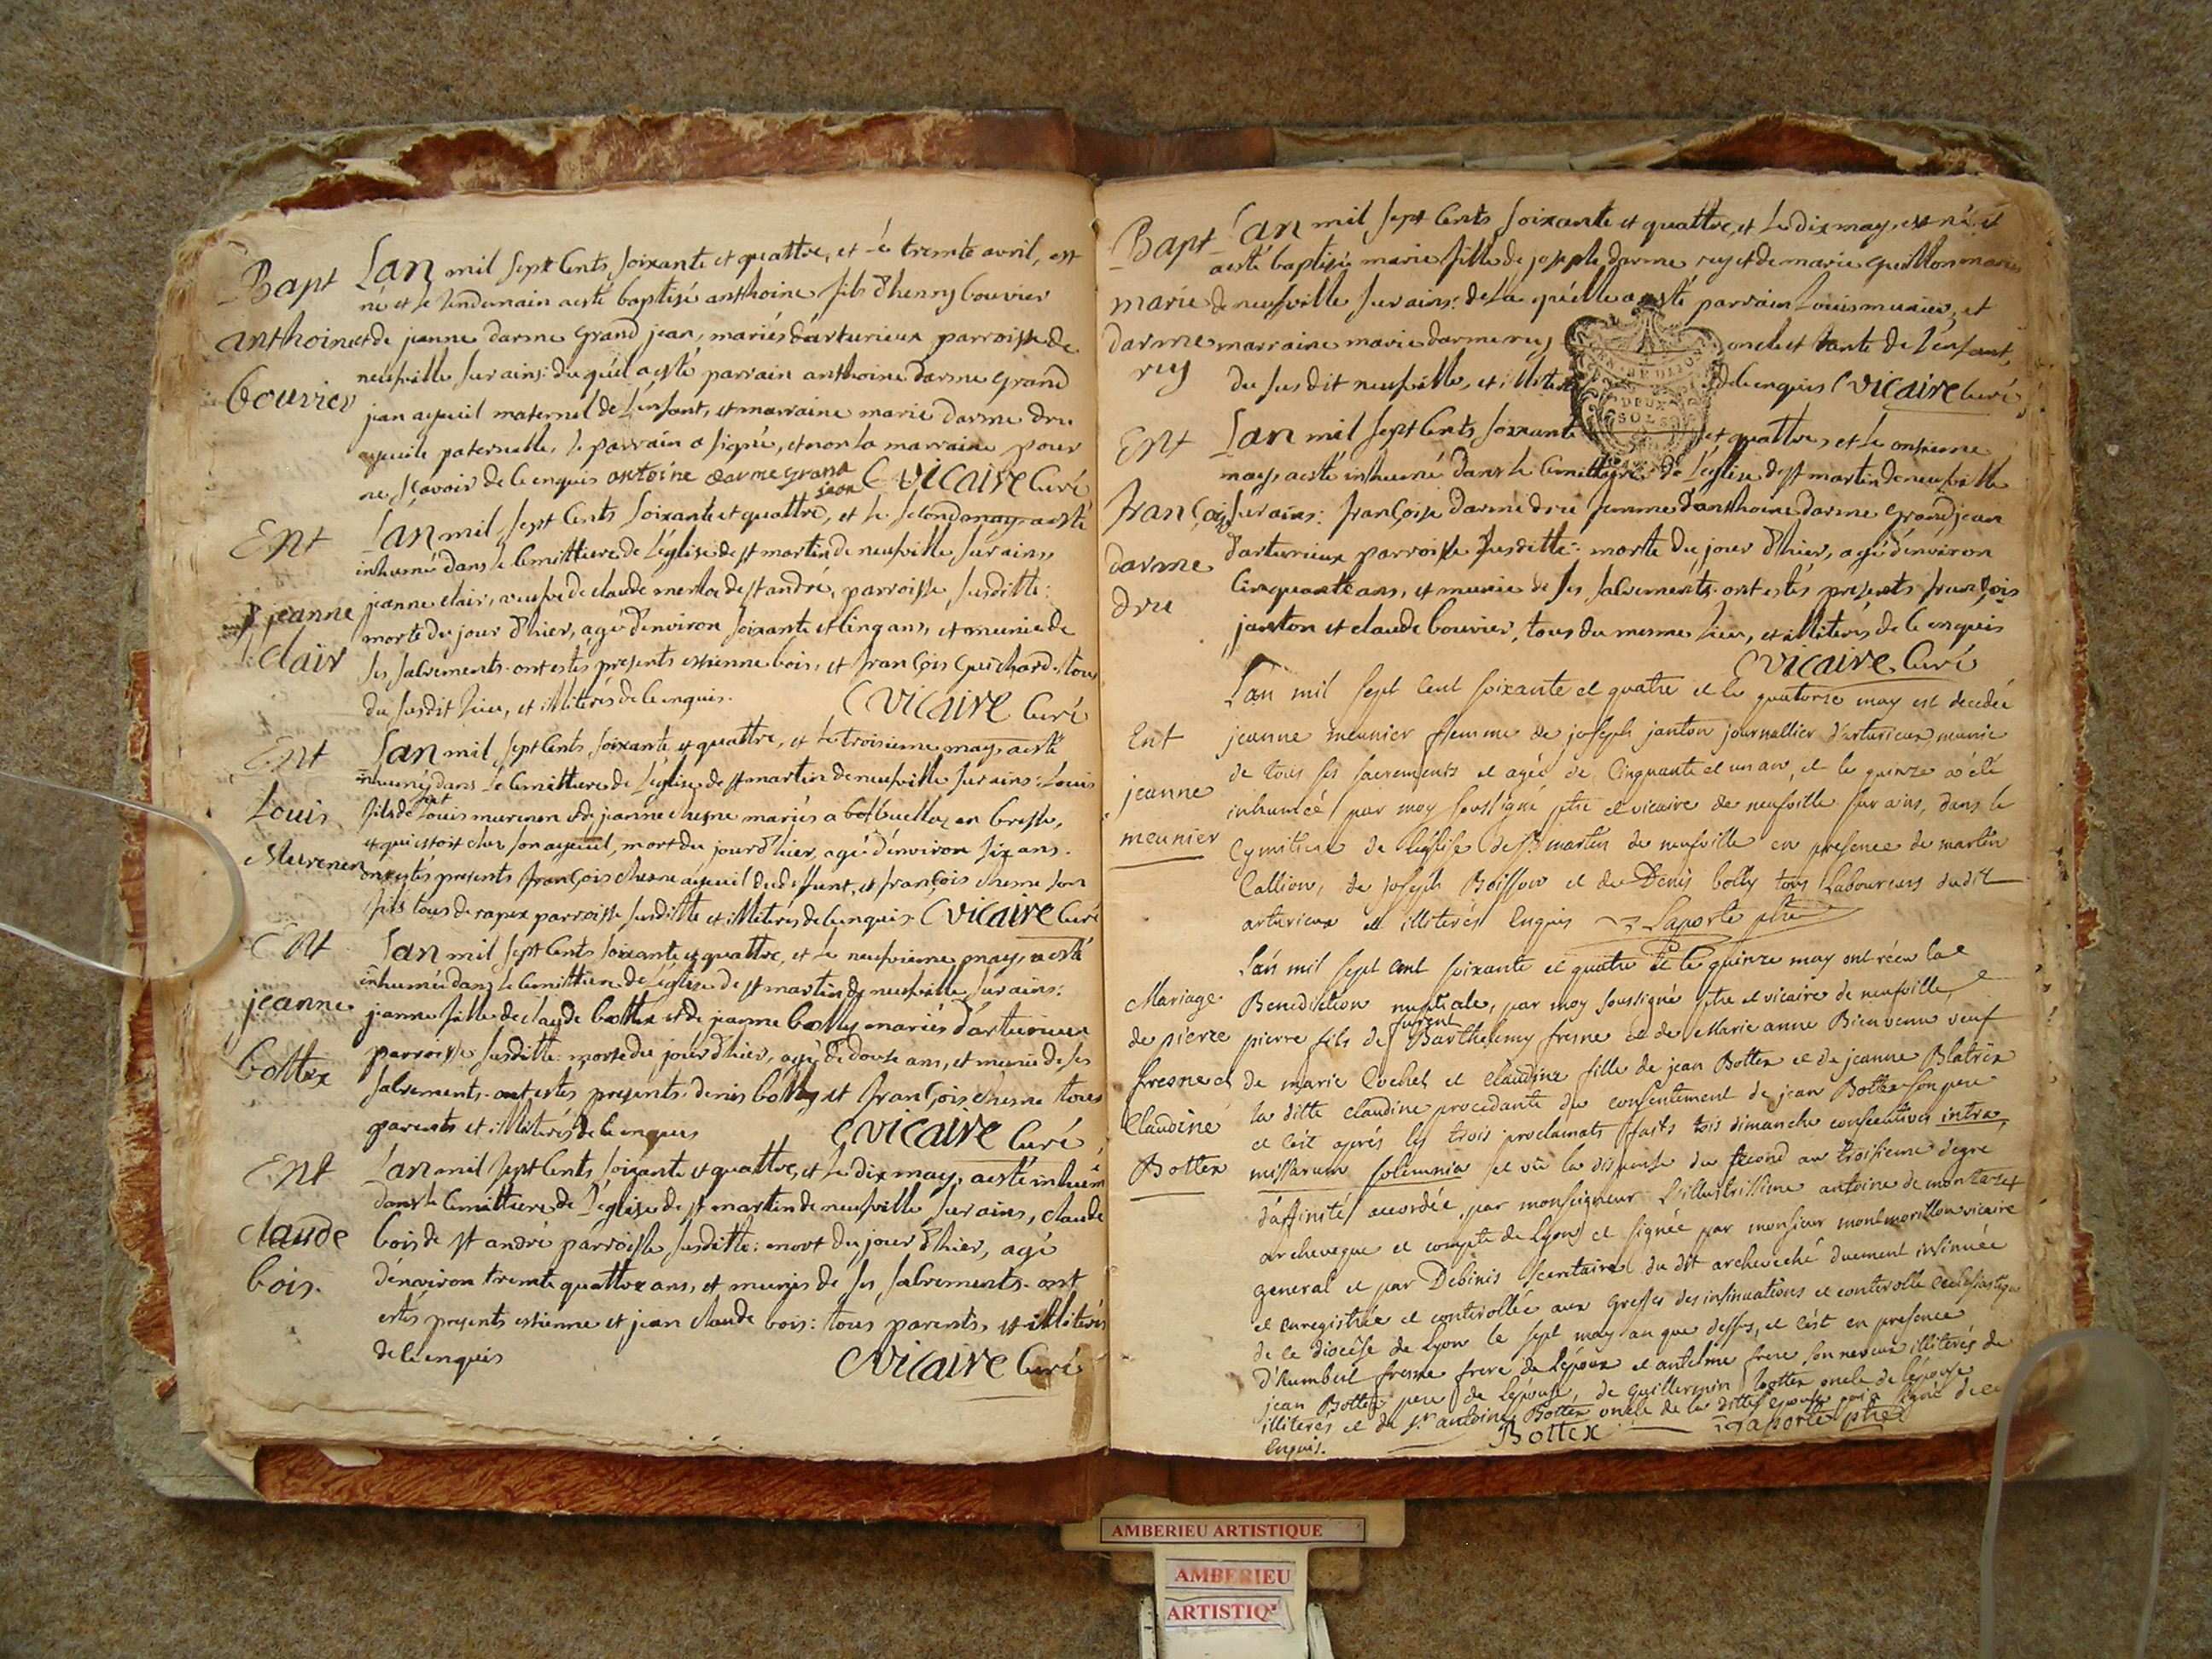 Bapt
anthoine
bouvier
Lan mil sept cents soixante et quattre, et le trente avril, est
né et le lendemain a esté baptisé anthoine fils d'henry bouvier
et de jeanne darme grand jean, mariés d'arturieux parroisse de
neufville sur ains: du quel a esté parrain anthoine darme grand
jean ayeuil maternel de l'enfant, et marraine marie darme dru
ayeule paternelle, le parrain a signé, et non la marraine pour
ne sçavoir de ce enquis antoine darme grand
jean C vicaire curé
Ent
jeanne
clair
Lan mil sept cents soixante et quattre, et le second may a esté
inhumé dans le cemittiere de l'église de st martin de neufville sur ains
jeanne clair, veufve de claude merloz de st andré, parroisse susditte:
morte du jour d'hier, agé d'environ soixante et cinq ans, et munie de
ses sacrements. ont estés presents estienne bois, et françois guichard, tous
du susdit lieu, et illiterés de ce enquis.
C vicaire curé
Ent
Louis
Murenen
Lan mil sept cents soixante et quattre, et le troisieme may a esté
inhumé dans le cemittiere de l'église de st martin de neufville sur ains: Louis
fils de louis murenen et de jeanne chesne mariés a en bresse,
et qui estoit chez son ayeuil, mort du jour d'hier, agé d'environ six ans.
ont estés presents françois chesne ayeuil du deffunt, et françois chesne son
fils tous de rapex parroisse susditte et illiterés de ce enquis C vicaire curé
Ent
jeanne
bottex
Lan mil sept cents soixante et quattre, et le neufvieme may, a esté
inhumée dans le cemittiere de l'église de st martin de neufville sur ains:
jeanne fille de claude bottex et de jeanne bolly mariés d'arturieux
parroisse susditte: morte du jour d'hier, agé de douse ans, et munie de ses
sacrements. ont estés presents denis bolly et françois chesne tous
parents et illiterés de ce enquis
C vicaire curé
Ent
claude
bois.
Lan mil sept cents soixante et quattre, et le dix may, a esté inhumé
dans le cemittiere de l'église de st martin de neufville sur ains, claude
bois de st andré parroisse susditte: mort du jour d'hier, agé
d'environ trente quattre ans, et munis de ses sacrements. ont
estés presents estienne et jean claude bois: tous parents, et illiterés
de ce enquis
C vicaire curé
Bapt
marie
darme
rey
Lan mil sept cents soixante et quattre, et le dix may, est né et
a esté baptisé marie fille de joseph darme rey et de marie quillon mariés
de neufville sur ains: de la quelle a esté parrain Louis munier, et
marraine marie darme rey oncle et tante de l'enfant,
du susdit neufville, et illiterés de ce enquis C vicaire curé
DEUX
SOLS
Ent
françoise
darme
dru
Lan mil sept cents soixante et quattre, et le onsieme
may, a esté inhumé dans le cemittiere de l'église de st martin de neufville
sur ains: françoise darme dru femme d'anthoine darme grand jean
d'arturieux parroisse susditte: morte du jour d'hier, agé d'environ
cinquante ans, et munie de ses sacrements. ont estés presents françois
janton et claude bouvier, tous du mesme lieu, et illiterés de ce enquis
C vicaire curé
Ent
jeanne
meunier
L'an mil sept cent soixante et quatre et le quatorze may est decedée
jeanne meunier femme de joseph janton journallier d'arturieux, munie
de tous ses sacrements et agée de cinquante et un an, et le quinze a été
inhumée par moy soussigné ptre et vicaire de neufville sur ains, dans le
Cymitiere de l'église de st martin de neufville en presence de martin
Callion, de joseph Boisson et de Denis bolly tous Laboureurs dudit
arturieux et illiterés enquis Laporte ptre
Mariage
de pierre
fresne et
Claudine
Bottex
L'an mil sept cent soixante et quatre et le quinze may ont récu la
Benediction nuptiale, par moy soussigné ptre et vicaire de neufville,
pierre fils de Barthelemy fresne et de Marie anne Bienvenu veuf
de marie Cochet et Claudine fille de jean Bottex et de jeanne Blatrix
la ditte claudine procedante du consentement de jean Bottex son pere
et c'est aprés les trois proclamats faits trois dimanches consecutives intra
missarum solemnia et vû la dispense du second au troisieme degre
d'affinité accordée, par monseigneur L'illustrissime antoine de montazet
archeveque et compte de Lyon et signée par monsieur montmorillon vicaire
general et par Debinis secretaire du dit archeveché duement insinuée
et enregistrée et controllée aux greffes des insinuations et controlle ecclesiastique
de ce diocése de Lyon le sept may an que dessus, et c'est en presence
d'humbert fresne frere de l'époux et antelme frere son neveux illiterés de
jean Bottex pere de l'épouse, de guillermin Bottex oncle de l'épouse
illiterés et du sr antoine Bottex oncle de la ditte epouse qui a signé de ce
enquis.
Bottex Laporte ptre
AMBERIEU ARTISTIQUE
AMBERIEU
ARTISTIQ